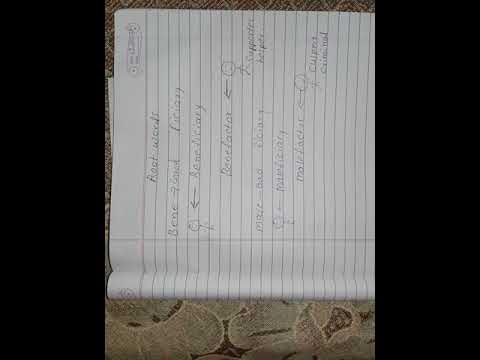 Root words
Bene → Good ficiary
← Beneficiary
Benefactor ←
Supporter
helper
Male - Bad ficiary
← Maleficiary
Malefactor ←
culprit
criminal